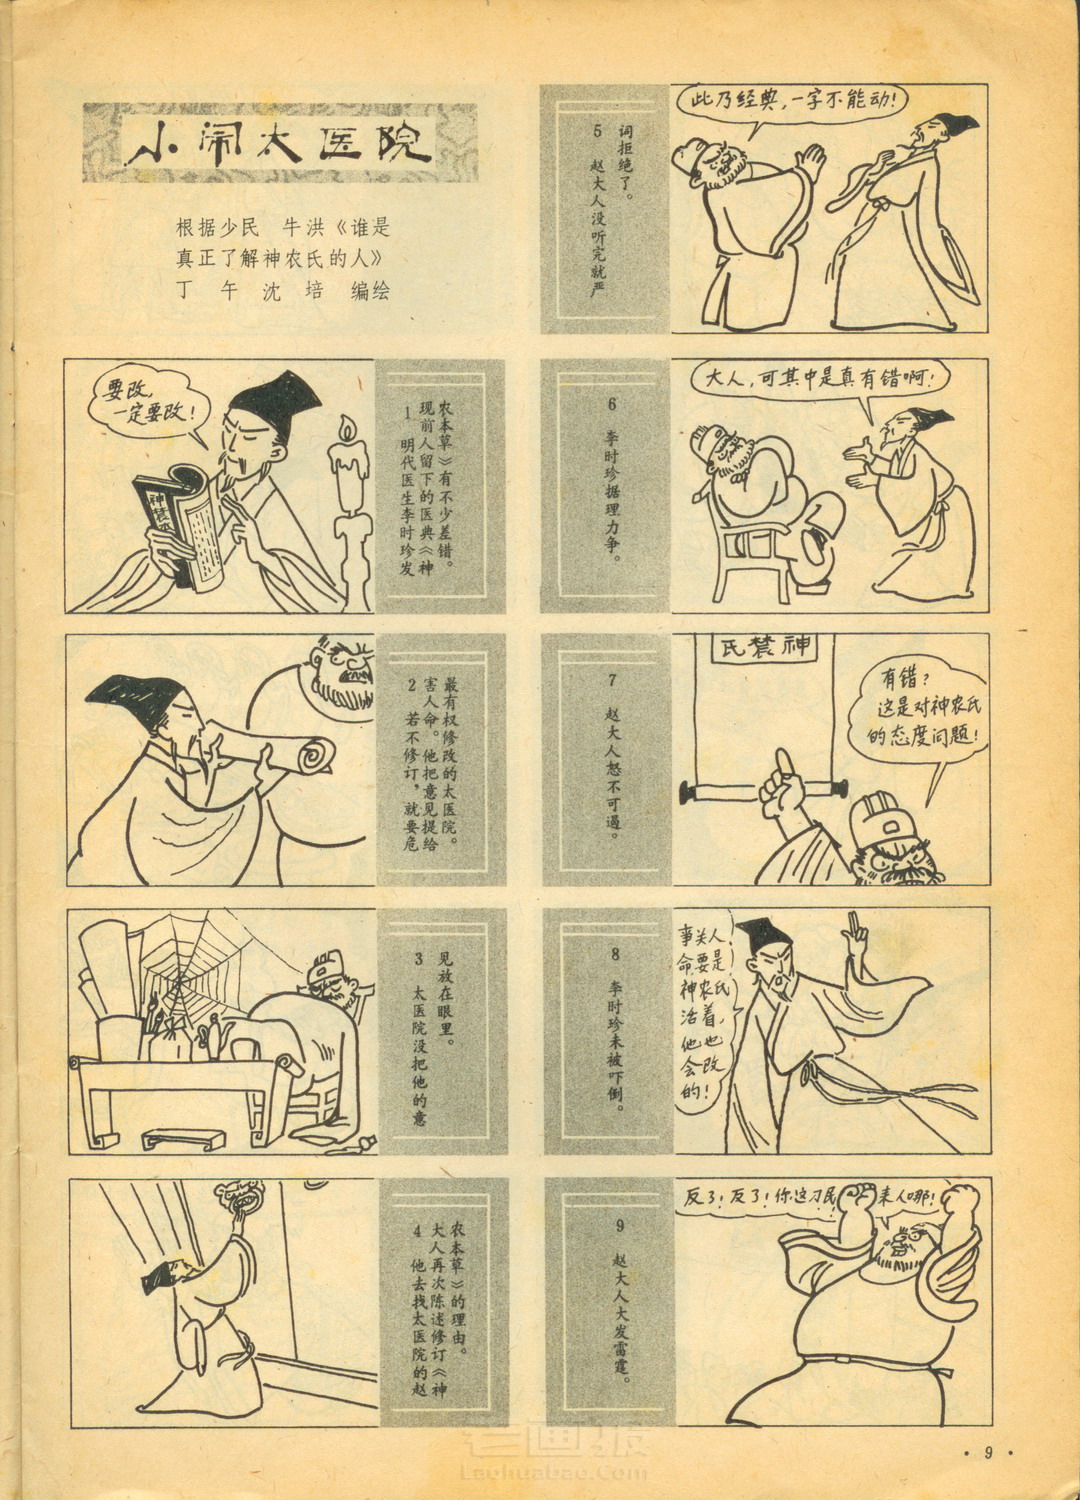 小闹太医院
根据少民 牛洪《谁是
真正了解神农氏的人》
丁午 沈培 编绘
要改,
一定要改!
神農
1 明代医生李时珍发
现前人留下的医典《神
农本草》有不少差错。
2 若不修订,就要危
害人命。他把意见提给
最有权修改的太医院。
3 太医院没把他的意
见放在眼里。
4 他去找太医院的赵
大人再次陈述修订《神
农本草》的理由。
5 赵大人没听完就严
词拒绝了。
此乃经典,一字不能动!
6 李时珍据理力争。
大人,可其中是真有错啊!
7 赵大人怒不可遏。
神農氏
有错?
这是对神农氏
的态度问题!
8 李时珍未被吓倒。
事关人
命要是
神农氏
活着,
他也
会改
的!
9 赵大人大发雷霆。
反了!反了!你这刁民 来人哪!
·9·
老画报
Laohuabao.Com